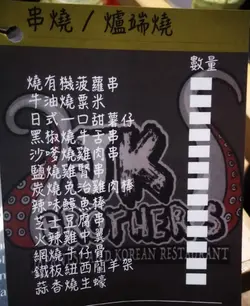 串燒 / 爐端燒
數量
燒有機菠蘿串
牛油燒粟米
日式一口甜薯仔
黑椒燒牛舌串
沙爹燒雞肉串
鹽燒雞腎串
炭燒免治雞肉棒
辣味鱈魚棒
芝士豆腐串
火辣雞中翼
網燒仔骨
鐵板紐西蘭羊架
蒜香燒生蠔
K
BROTHERS
KOREAN RESTAURANT